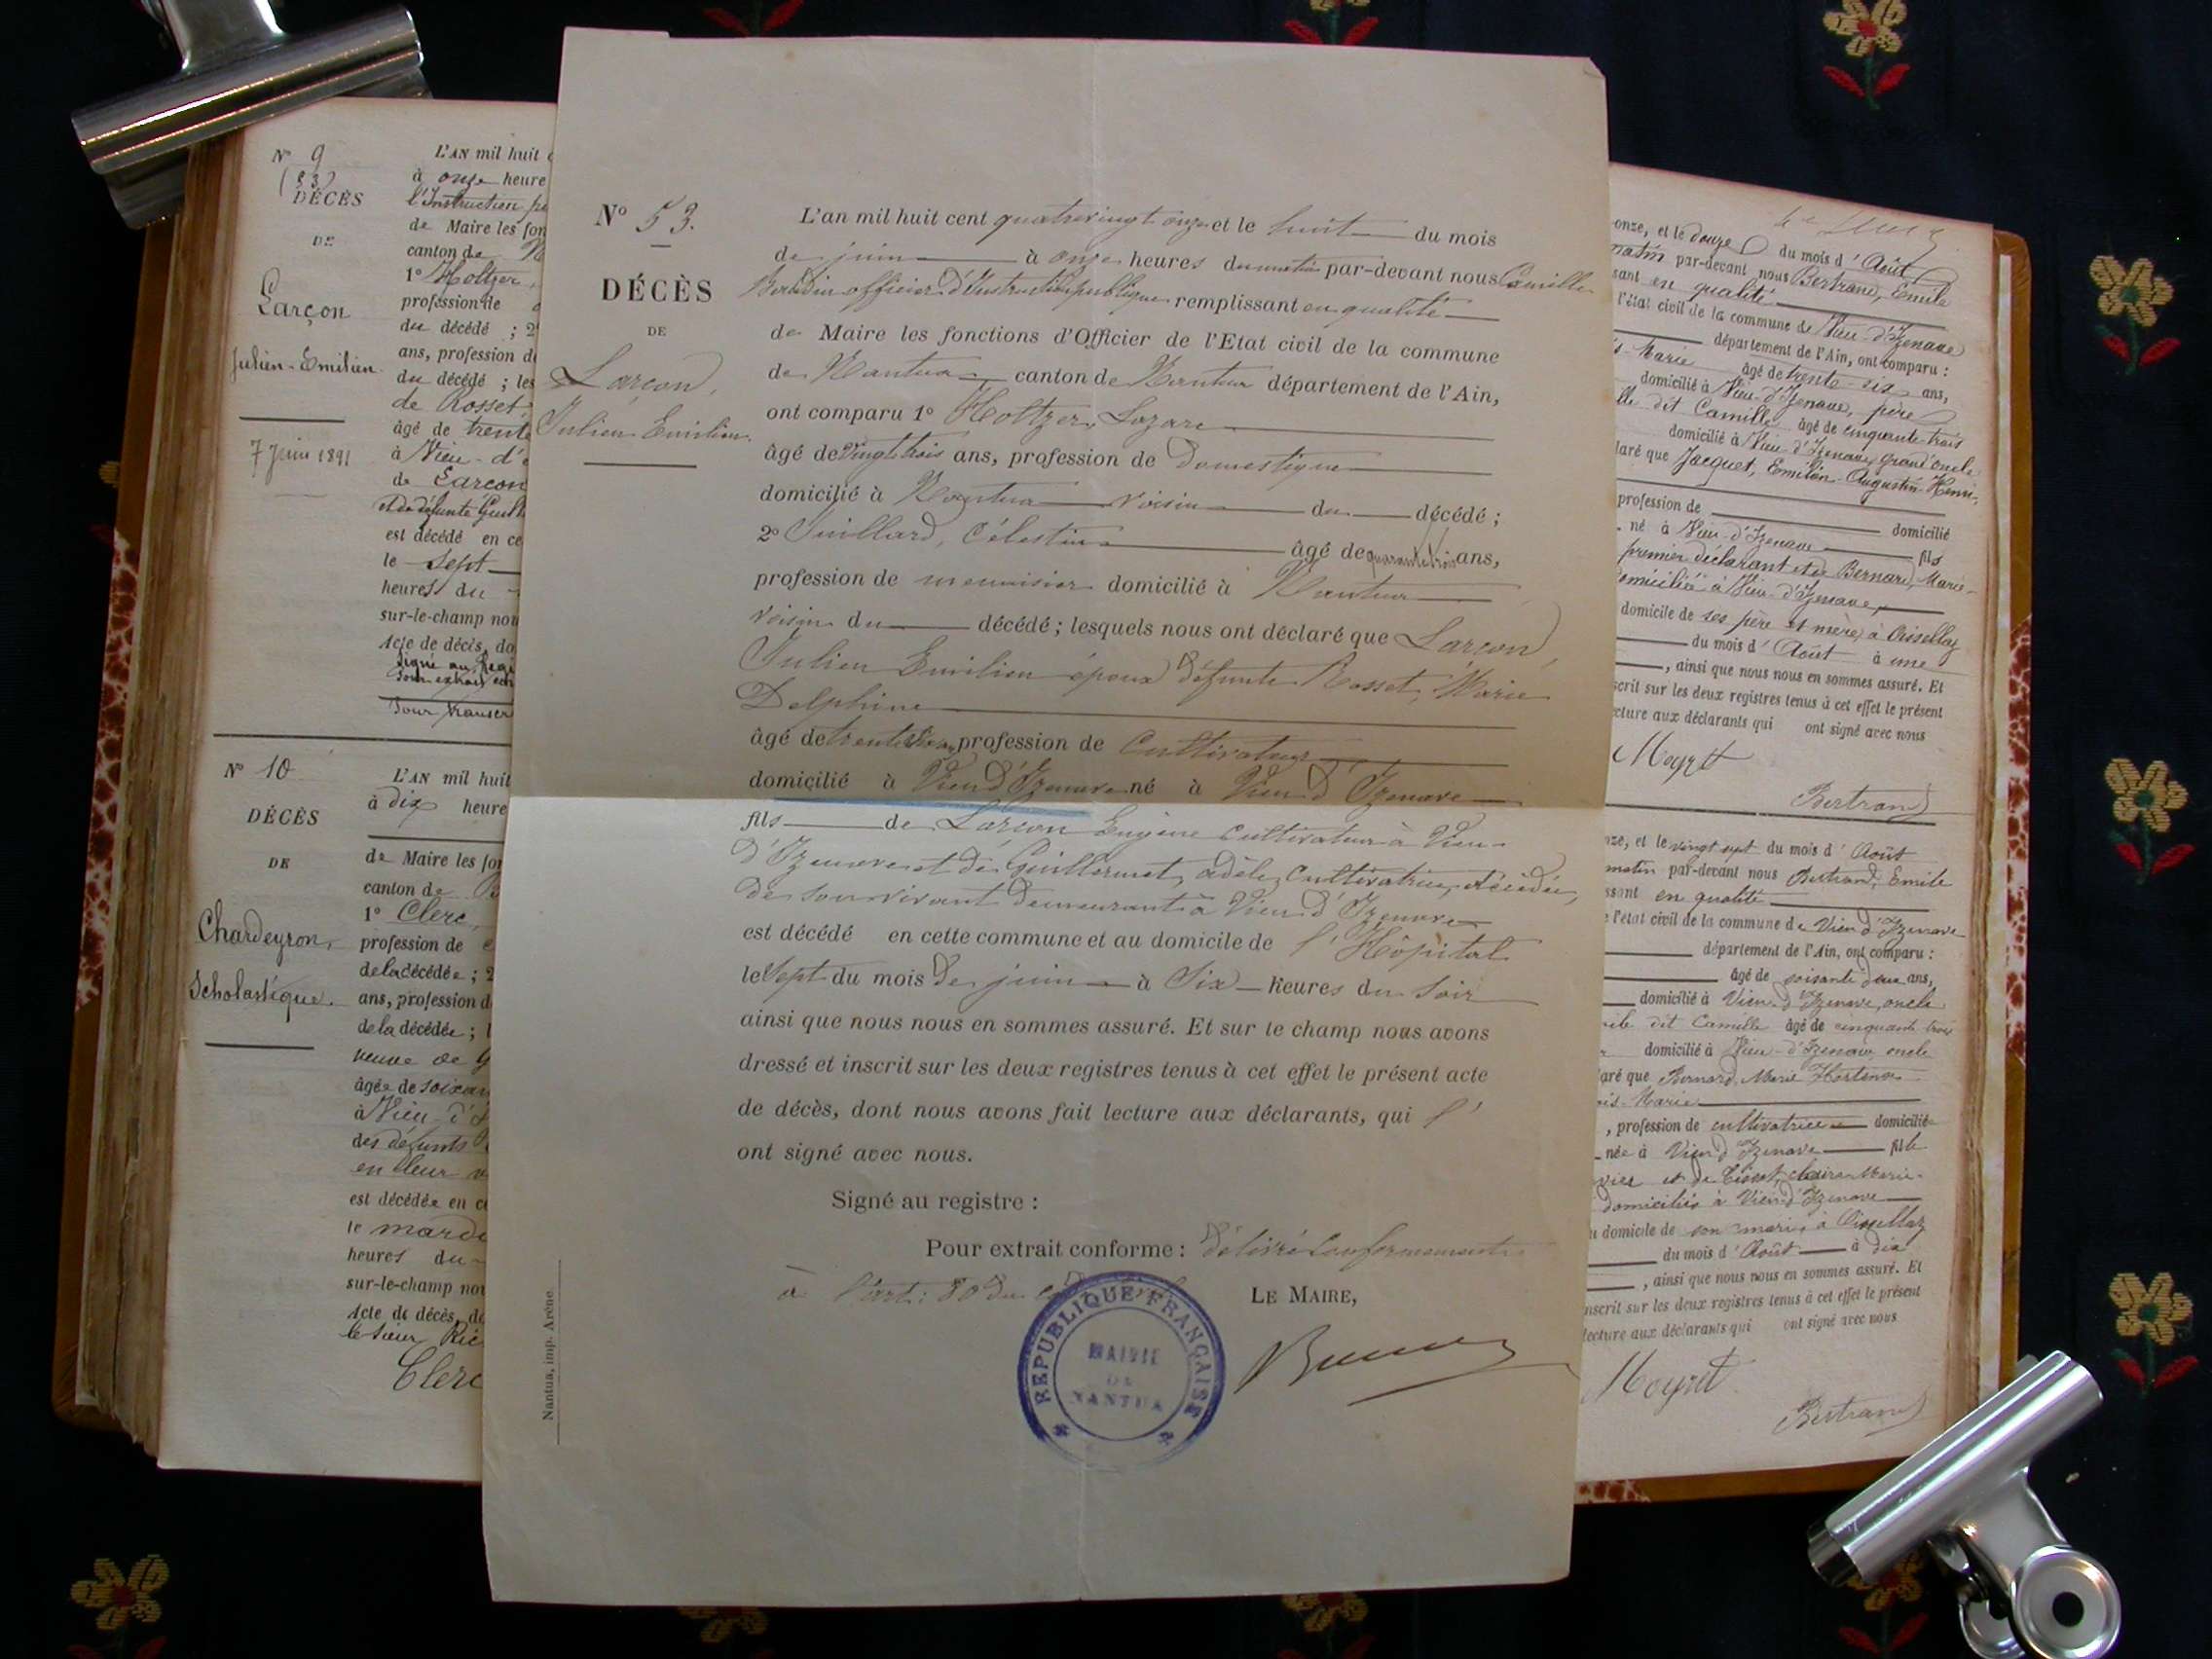 N° 9
(53)
DÉCÈS
DE
Larçon
Julien-Emilien
7 Juin 1891
L'AN mil huit
à onze heure
l'Instruction
de Maire les fon
canton de
1° Holtzer,
profession de
du décédé ; 2
ans, profession d
du décédé ; les
de Rosset
âgé de trente
à Vieu-d'
de Larçon
et de défunte Guill
est décédé en ce
le sept
heures du
sur-le-champ nou
Acte de décès, do
Signé au
Pour extrait
Pour transcr
N° 10
DÉCÈS
DE
Chardeyron,
Scholastique.
L'AN mil huit
à dix heure
de Maire les fon
canton de
1° Clerc,
profession de
de la décédée ; 2
ans, profession d
de la décédée ; l
veuve de
âgée de soixan
à Vieu-d'
des défunts
en leur
est décédée en c
le mardi
heures du
sur-le-champ nou
Acte de décès, do
le sieur Ric
Clerc
N° 53.
DÉCÈS
DE
Larçon,
Julien Emilien.
L'an mil huit cent quatrevingt onze et le huit du mois
de juin à onze heures du matin par-devant nous Camille
officier d'Instruction publique remplissant en qualité
de Maire les fonctions d'Officier de l'Etat civil de la commune
de Nantua canton de Nantua département de l'Ain,
ont comparu 1° Holtzer, Lazare
âgé de vingt trois ans, profession de Domestique
domicilié à Nantua voisin du décédé ;
2° Juillard, Célestin âgé de quarante trois ans,
profession de menuisier domicilié à Nantua
voisin du décédé ; lesquels nous ont déclaré que Larçon,
Julien Emilien époux défunte Rosset, Marie
Delphine
âgé de trente ans profession de Cultivateur
domicilié à Vieu d'Izenave né à Vieu d'Izenave
fils de Larçon Eugène Cultivateur à Vieu
d'Izenave et de Guillermet, adèle, Cultivatrice, décédée,
de son vivant demeurant à Vieu d'Izenave
est décédé en cette commune et au domicile de l'Hôpital
le Sept du mois de juin à Six heures du Soir
ainsi que nous nous en sommes assuré. Et sur le champ nous avons
dressé et inscrit sur les deux registres tenus à cet effet le présent acte
de décès, dont nous avons fait lecture aux déclarants, qui l'
ont signé avec nous.
Signé au registre :
Pour extrait conforme : Délivré Conformément
à l'art: 80 du
LE MAIRE,
REPUBLIQUE FRANÇAISE
MAIRIE
DE
NANTUA
Nantua, imp. Arène.
onze, et le douze du mois d'Août
matin par-devant nous Bertrand, Emile
sant en qualité
l'état civil de la commune de Vieu-d'Izenave
département de l'Ain, ont comparu :
s-Marie âgé de trente-six ans,
domicilié à Vieu-d'Izenave, père
ile dit Camille âgé de cinquante-trois
domicilié à Vieu-d'Izenave, grand'oncle
laré que Jacquet, Emilien-Augustin-Henri,
profession de domicilié
né à Vieu-d'Izenave fils
premier déclarant et de Bernard, Marie-
domiciliée à Vieu-d'Izenave,
domicile de ses père et mère à Oisellaz
du mois d'Août à une
, ainsi que nous nous en sommes assuré. Et
scrit sur les deux registres tenus à cet effet le présent
cture aux déclarants qui ont signé avec nous
Meyret
Bertrand
nze, et le vingt sept du mois d'Août
matin par-devant nous Bertrand, Emile
ssant en qualité
e l'état civil de la commune de Vieu d'Izenave
département de l'Ain, ont comparu :
âgé de soixante deux ans,
domicilié à Vieu d'Izenave, oncle
ile dit Camille âgé de cinquante trois
domicilié à Vieu-d'Izenave oncle
aré que Bernard, Marie Hortense
ois-Marie
, profession de cultivatrice domiciliée
née à Vieu d'Izenave fille
vier et de Claire Marie
domiciliés à Vieu d'Izenave
u domicile de son mari, à Oisellaz
du mois d'Août à dix
, ainsi que nous nous en sommes assuré. Et
nscrit sur les deux registres tenus à cet effet le présent
lecture aux déclarants qui ont signé avec nous
Meyret
Bertrand